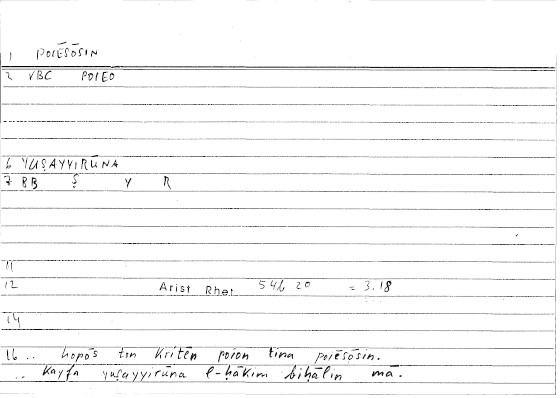 1 POIĒSŌSIN
2 VBC POIEO
6 YUṢAYYIRŪNA
7 BB Ṣ Y R
11
12 Arist Rhet 54b 20 = 3.18
14
16 .. hopōs ton Kritēn poion tina poiēsōsin.
.. Kayfa yuṣayyirūna l-ḥākim biḥālin mā.